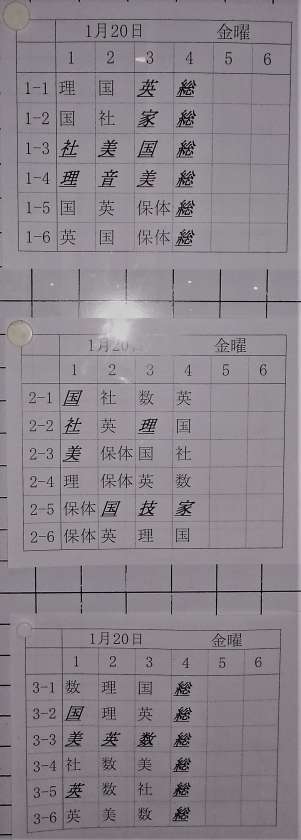 1月20日 金曜
1 2 3 4 5 6
1-1 理 国 英 総
1-2 国 社 家 総
1-3 社 美 国 総
1-4 理 音 美 総
1-5 国 英 保体 総
1-6 英 国 保体 総
1月20日 金曜
1 2 3 4 5 6
2-1 国 社 数 英
2-2 社 英 理 国
2-3 美 保体 国 社
2-4 理 保体 英 数
2-5 保体 国 技 家
2-6 保体 英 理 国
1月20日 金曜
1 2 3 4 5 6
3-1 数 理 国 総
3-2 国 理 英 総
3-3 美 英 数 総
3-4 社 数 美 総
3-5 英 数 社 総
3-6 英 美 数 総